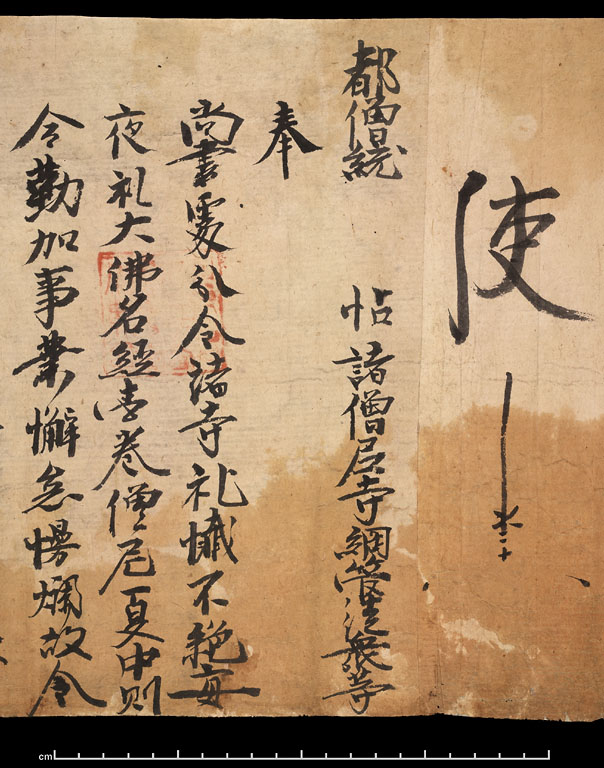 使
都僧統 帖諸僧尼寺綱管徒衆等
奉
尚書處分令諸寺礼懺不絕每
夜礼大佛名經壹卷僧尼夏中則
令勤加事業懈怠慢爛故令
cm